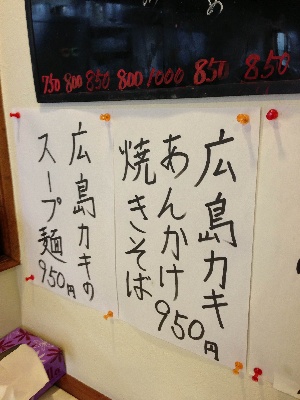 め
750 800 850 800 1000 850 850
広島カキ
あんかけ
焼きそば
950円
広島カキの
スープ麺
950円